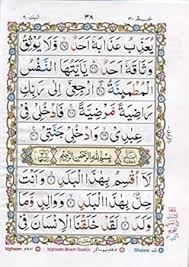 یُعَذِّبُ عَذَابَهٗۤ اَحَدٌ ۙ وَّ لَا یُوْثِقُ
وَثَاقَهٗۤ اَحَدٌ ؕ یٰۤاَیَّتُهَا النَّفْسُ
الْمُطْمَىِٕنَّةُ ارْجِعِیْۤ اِلٰی رَبِّكِ
رَاضِیَةً مَّرْضِیَّةً ۚ فَادْخُلِیْ فِیْ
عِبٰدِیْ ۙ وَ ادْخُلِیْ جَنَّتِیْ
بِسْمِ اللّٰهِ الرَّحْمٰنِ الرَّحِیْمِ
لَاۤ اُقْسِمُ بِهٰذَا الْبَلَدِ ۙ وَ اَنْتَ
حِلٌّۢ بِهٰذَا الْبَلَدِ ۙ وَ وَالِدٍ وَّ مَا
وَلَدَ ۙ لَقَدْ خَلَقْنَا الْاِنْسَانَ فِیْ